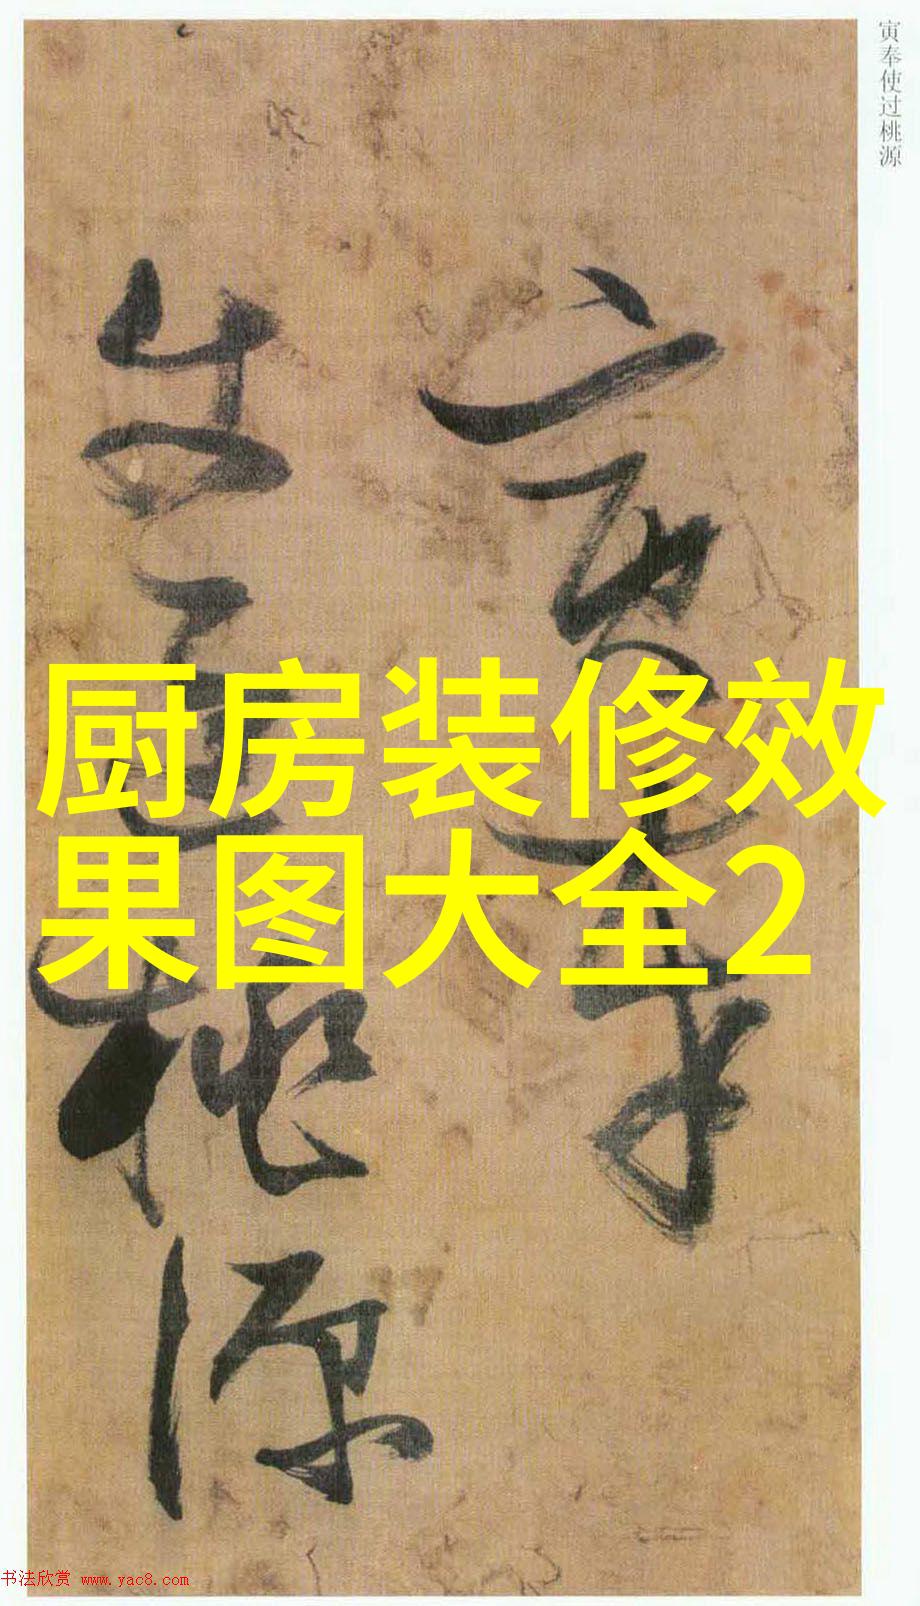 寅奉使过桃源
寅奉
使过桃源
厨房装修效
果图大全2
书法欣赏 www.yac8.com